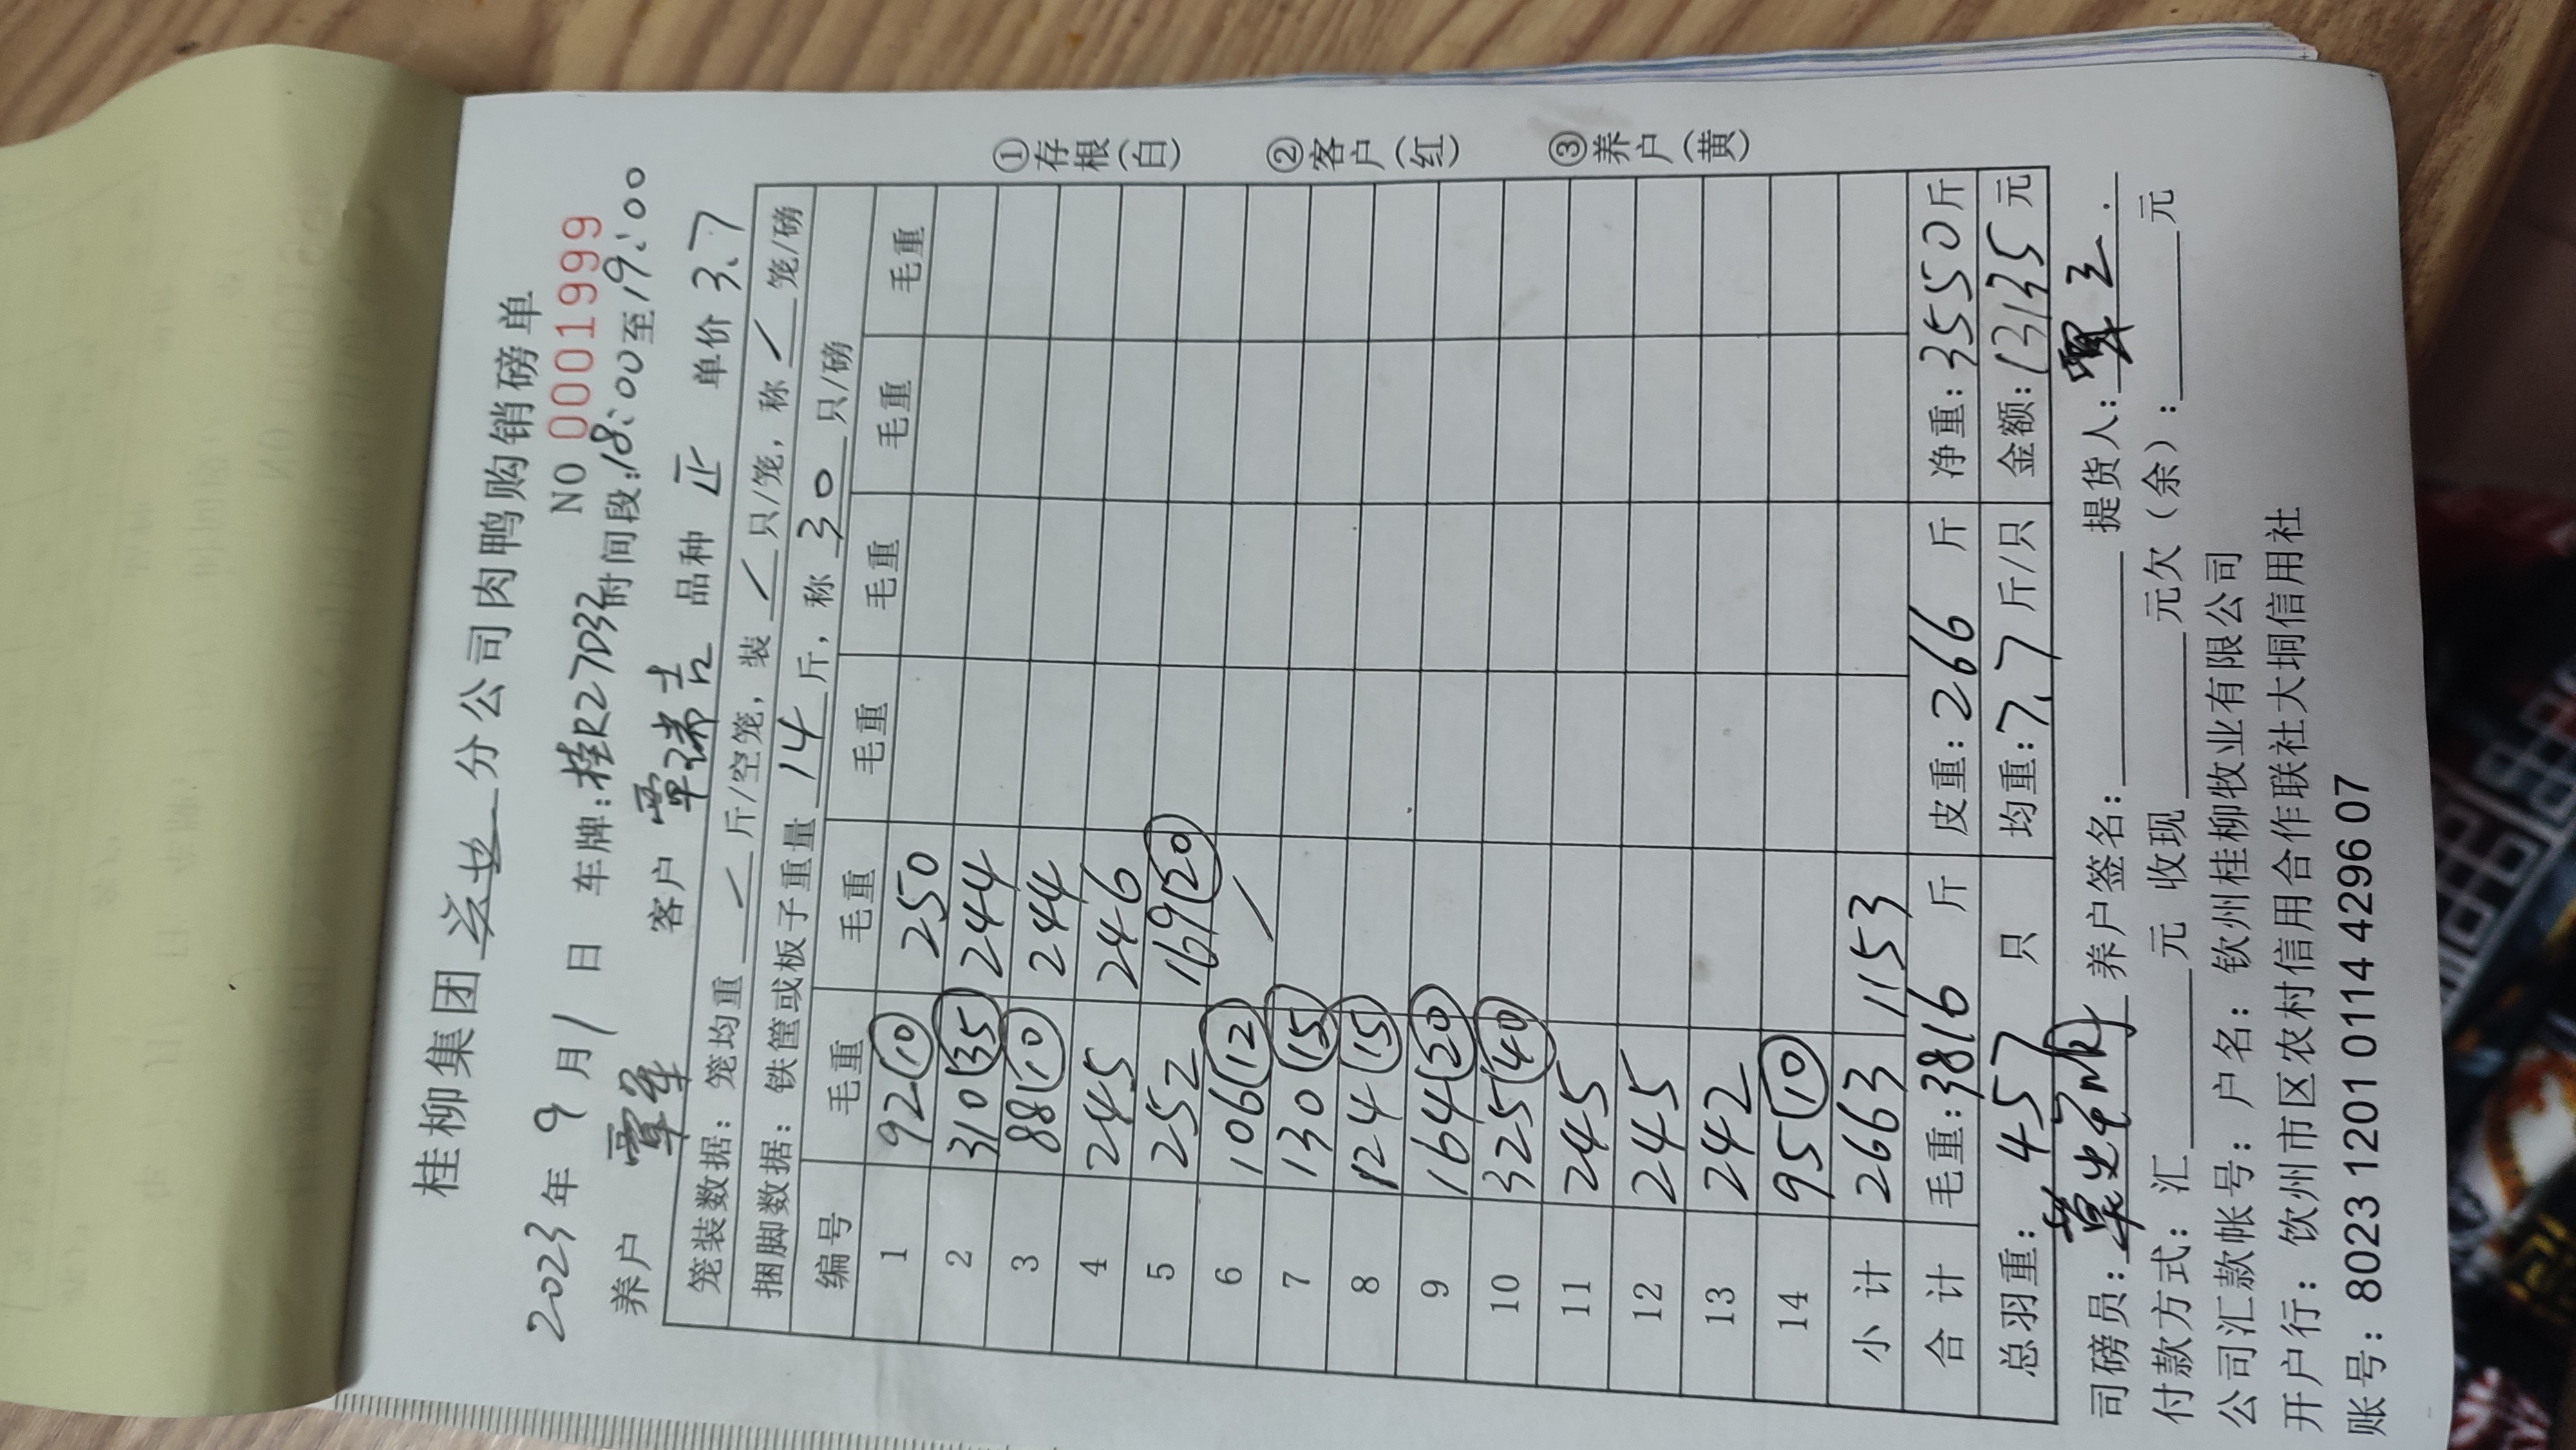 桂柳集团 兴业 分公司肉鸭购销磅单
NO 0001999
2023年 9 月 1 日 车牌:桂R27D32 时间段:18:00至19:00
养户 覃军 客户 覃瑞吉 品种 正 单价 3.7
笼装数据: 笼均重 / 斤/空笼, 装 / 只/笼, 称 / 笼/磅
捆脚数据: 铁筐或板子重量 14 斤, 称 30 只/磅
编号 毛重 毛重 毛重 毛重 毛重 毛重
1 92 (10) 250
2 310 (35) 244
3 88 (10) 244
4 245 246
5 252 169 (20)
6 106 (12) /
7 130 (15)
8 124 (15)
9 164 (20)
10 325 (40)
11 245
12 245
13 242
14 95 (10)
小 计 2663 1153
合 计 毛重:3816 斤 皮重:266 斤 净重:3550斤
总羽重: 457 只 均重:7.7 斤/只 金额:13135 元
司磅员: 养户签名: 提货人:
付款方式: 汇 元 收现 元欠(余): 元
公司汇款帐号: 户名: 钦州桂柳牧业有限公司
开户行: 钦州市区农村信用合作联社大垌信用社
账号: 8023 1201 0114 4296 07
①存根(白)
②客户(红)
③养户(黄)